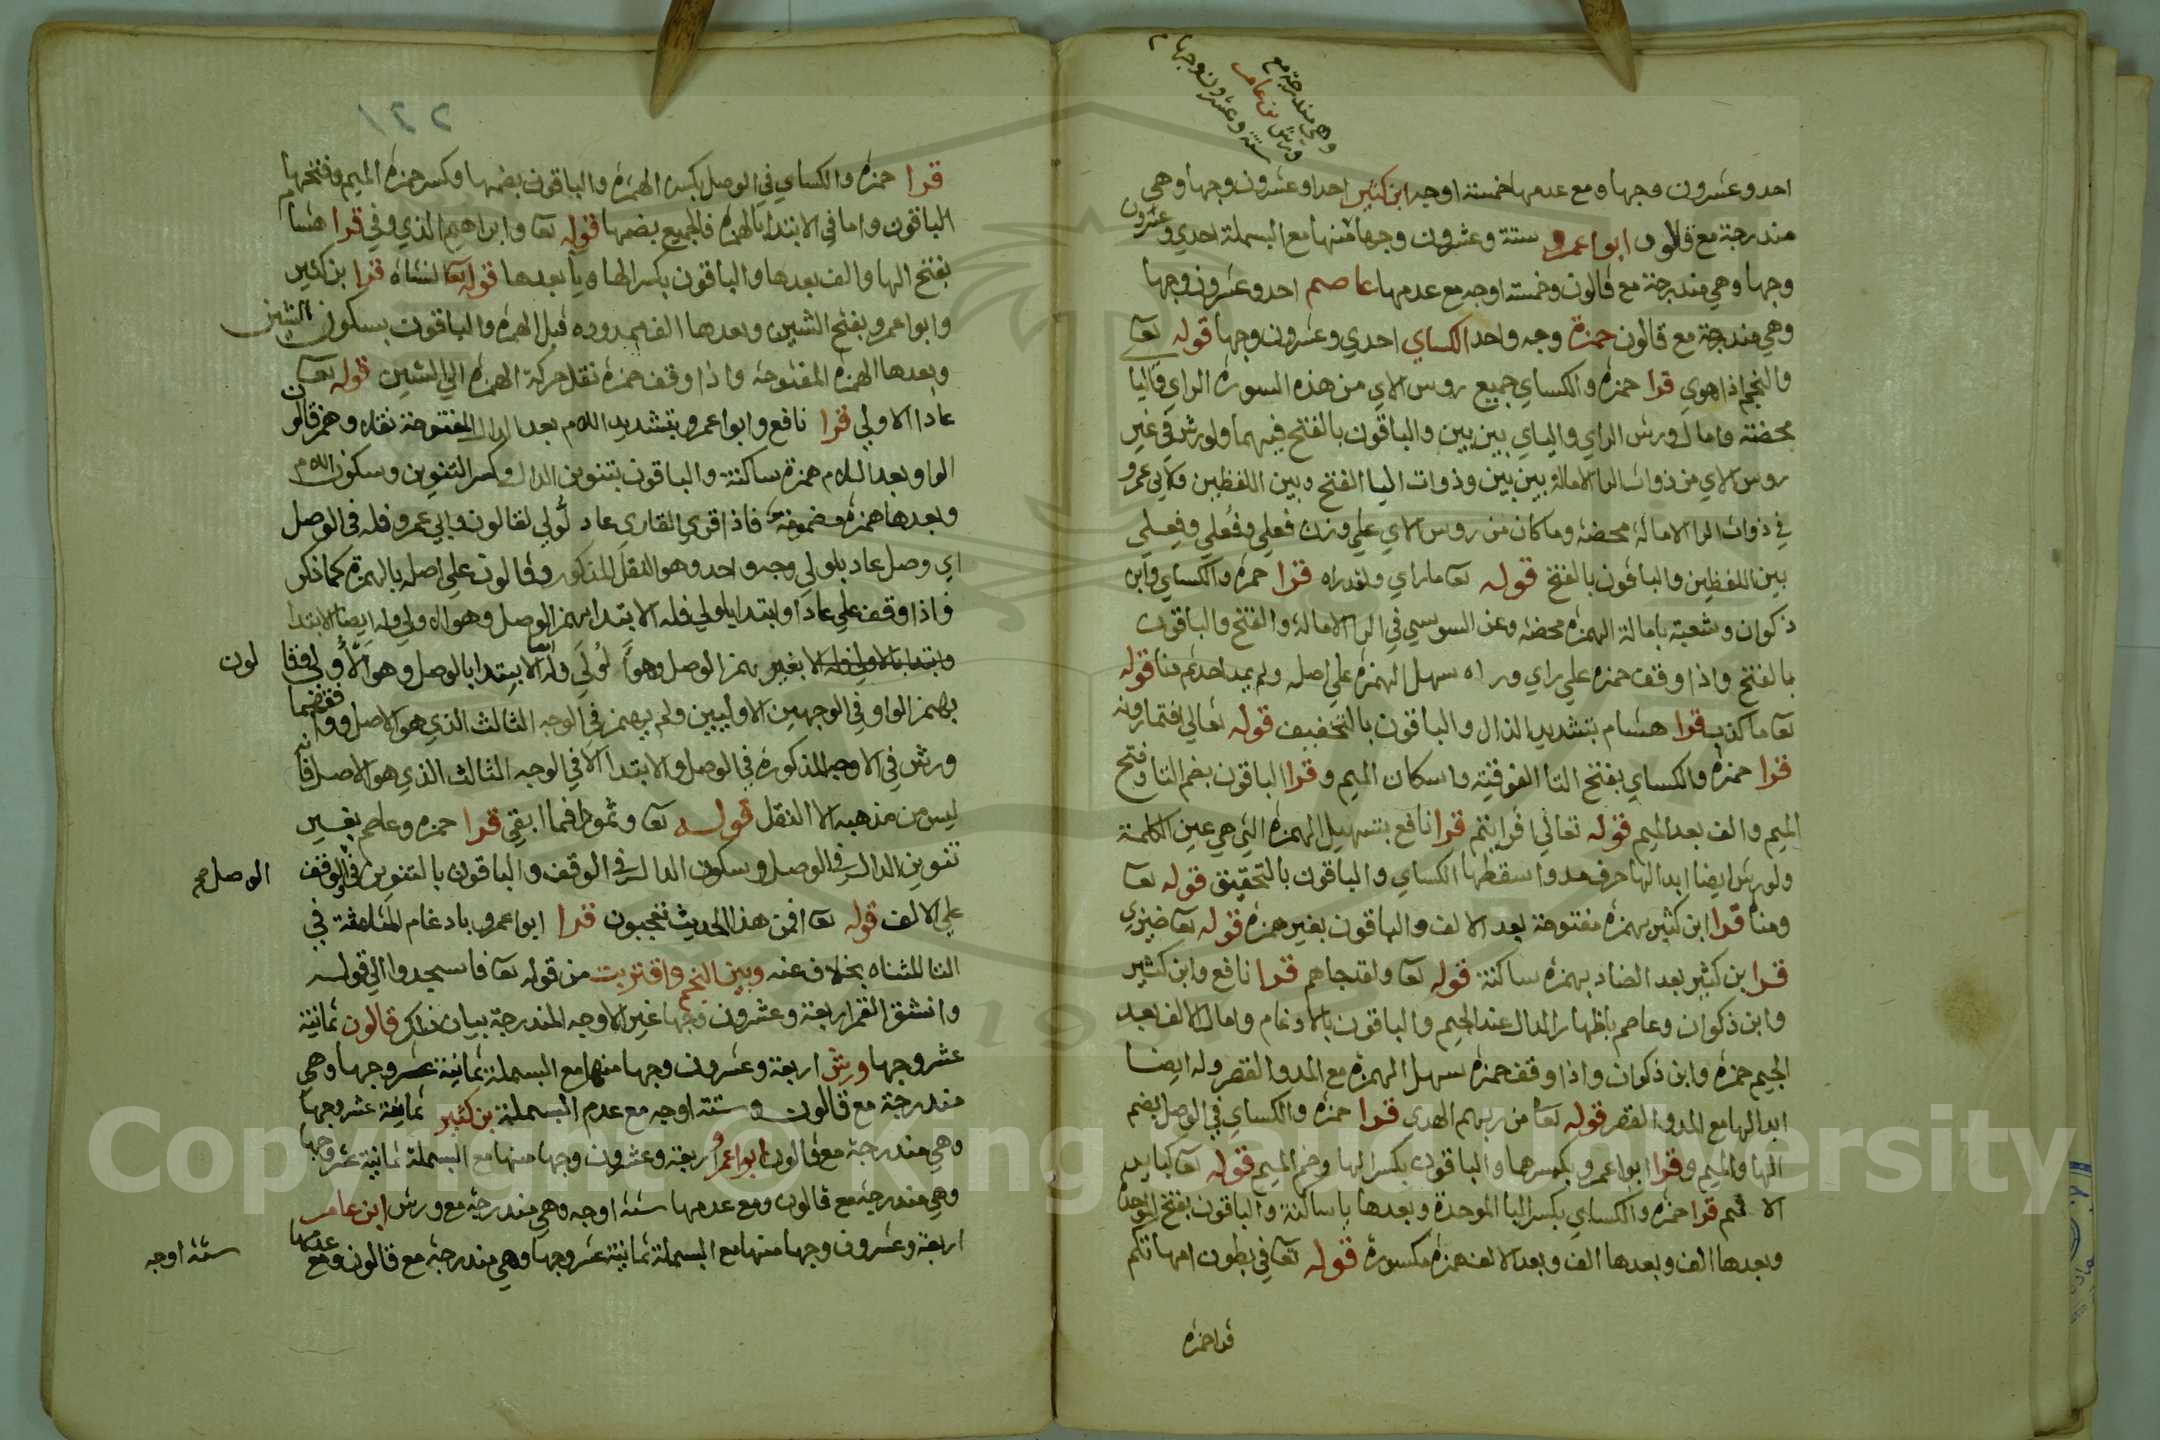 وهي مندرجة مع
ورش بن عامر
ستة وعشرون وجها
احد وعشرون وجها ومع عدمها خمسة اوجه ابن كثير احد وعشرون وجها وهي
مندرجة مع قالون ابو اعمرو ستة وعشرون وجها منها مع البسملة احدي وعشرون
وجها وهي مندرجة مع قالون وخمسة اوجه مع عدمها عاصم احد وعشرون وجها
وهي مندرجة مع قالون حمزة وجه واحد الكساي احدي وعشرون وجها قوله تعا
والنجم اذا هوي قرا حمزه والكساي جميع روس الاي من هذه السوره الراي واليا
محضة وامال ورش الراي والياي بين بين والباقون بالفتح فيهما ولورش في غير
روس الاي من ذوات الرا الاماله بين بين وذوات اليا الفتح وبين اللفظين ولابي عمرو
في ذوات الرا الامالة محضه وما كان من روس الاي علي وزن فعلي وفعلي وفعلي
بين اللفظين والباقون بالفتح قوله تعا ماراي ولقد راه قرا حمزه والكساي وابن
ذكوان وشعبة بامالة الهمزه محضه وعن السوسي في الرا الامالة والفتح والباقون
بالفتح واذا وقف حمزه علي راي وراه سهل الهمزه علي اصله ولم يمد احد منا قوله
تعا ما كذب قرا هشام بتشديد الذال والباقون بالتخفيف قوله تعالي افتمارونه
قرا حمزه والكساي بفتح التا الفوقيه واسكان الميم وقرا الباقون بضم التا وفتح
الميم والف بعد الميم قوله تعالي افرايتم قرا نافع بتسهيل الهمزه التي هي عين الكلمة
ولورش ايضا ابدالها حرف مد واسقطها الكساي والباقون بالتحقيق قوله تعا
ومناة قرا ابن كثير بهمزه مفتوحة بعد الالف والباقون بغير همزه قوله تعا ضيزي
قرا بن كثير بعد الضاد بهمزه ساكنة قوله تعا ولقد جاهم قرا نافع وابن كثير
وابن ذكوان وعاصم باظهار الدال عند الجيم والباقون بالادغام وامال الالف بعد
الجيم حمزه وابن ذكوان واذا وقف حمزه سهل الهمزه مع المد والقصر وله ايضا
ابدالها مع المد والقصر قوله تعا من ربهم الهدي قرا حمزه والكساي في الوصل بضم
الها والميم وقرا ابو اعمرو بكسرهما والباقون بكسر الها وضم الميم قوله تعا كباير
الاثم قرا حمزه والكساي بكسر البا الموحدة وبعدها يا ساكنة والباقون بفتح الموحدة
وبعدها الف وبعدها الف وبعد الالف همزه مكسورة قوله تعا في بطون امهاتكم
قرا حمزه
قرا حمزه والكساي في الوصل بكسر الهمزه والباقون بضمها وكسر حمزه الميم وفتحها
الباقون واما في الابتدا بالهمزه فالجميع بضمها قوله تعا وابراهيم الذي وفي قرا هشام
بفتح الها والف بعدها والباقون بكسر الها ويا بعدها قوله تعا النشاه قرا بن كثير
وابو اعمرو بفتح الشين وبعدها الف ممدوده قبل الهمزه والباقون بسكون الشين
وبعدها الهمزه المفتوحة واذا وقف حمزه نقل حركة الهمزه الي الشين قوله تعا
عادا الاولي قرا نافع وابو اعمرو بتشديد اللام بعد الدال المفتوحة نقلا وهمز قالون
الواو بعد اللام همزة ساكنة والباقون بتنوين الدال وكسر التنوين وسكون اللام
وبعدها همزه مضمومة فاذا قري القاري عاد لولي لقالون وابي عمرو فله في الوصل
اي وصل عاد بلولي وجه واحد وهو النقل المذكور وقالون علي اصله بالهمزة كما ذكر
واذا وقف علي عادا وابتدا بلولي فله الابتدا بهمز الوصل وهو الولي وله ايضا الابتدا
بغير همز الوصل وهو لولي وله ايضا الابتدا بالوصل وهو الاولي وقا
لون
بهمز الواو في الوجهين الاوليين ولم يهمز في الوجه الثالث الذي هو الاصل ووافقهما
ورش في الاوجه المذكوره في الوصل والابتدا الا في الوجه الثالث الذي هو الاصل فانه
ليس من مذهبه الا النقل قوله تعا وثمود افما ابقي قرا حمزه وعاصم بغير
تنوين الدال في الوصل وسكون الدال في الوقف والباقون بالتنوين في الوقف
الوصل صح
علي الالف قوله تعا افمن هذا الحديث تعجبون قرا ابو اعمرو بادغام المثلثة في
التا المثناه بخلاف عنه وبين النجم واقتربت من قوله تعا فاسجدوا الي قوله
وانشق القمر اربعة وعشرون وجها غير الاوجه المندرجة بيان ذلك قالون ثمانية
عشر وجها ورش اربعة وعشرون وجها منها مع البسملة ثمانية عشر وجها وهي
مندرجة مع قالون وستة اوجه مع عدم البسملة بن كثير ثمانية عشر وجها
وهي مندرجة مع قالون ابو اعمرو اربعة وعشرون وجها منها مع البسملة ثمانية عشر وجها
وهي مندرجة مع قالون ومع عدمها ستة اوجه وهي مندرجة مع ورش ابن عامر
اربعة وعشرون وجها منها مع البسملة ثمانية عشر وجها وهي مندرجة مع قالون ومع عدمها
ستة اوجه
Copyright © King Saud University
1957